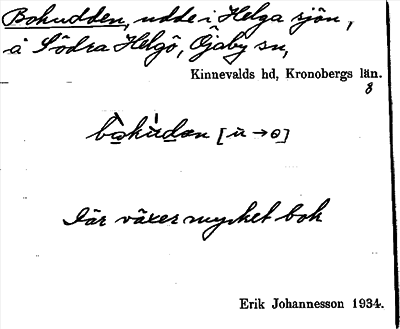 Bokudden, udde i Helga sjön,
å Södra Helgö, Öjaby sn,
Kinnevalds hd, Kronobergs län.
8
bo̱kùdan [ù → ɵ]
Där växer mycket bok
Erik Johannesson 1934.